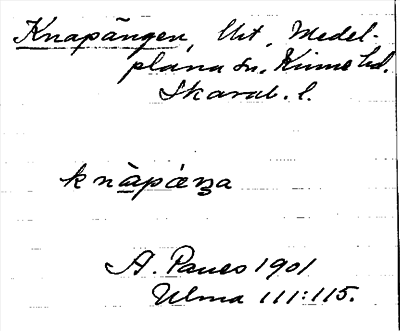 Knapängen, Utt, Medel-
plana sn. Kinne hd.
Skarab. l.
knàpáŋa
A. Paues 1901
Ulma 111:115.